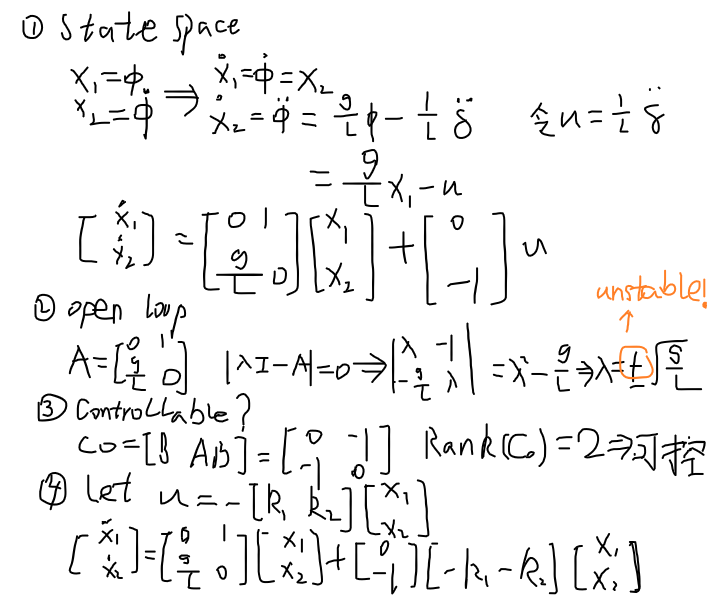 ① State space
x₁=ϕ ⇒ ẋ₁=ϕ̇=x₂
x₂=ϕ̇ ẋ₂=ϕ̈=g/L ϕ-1/L δ̈ 令u=1/L δ̈
=g/L x₁-u
[ẋ₁; ẋ₂]=[0 1; g/L 0][x₁; x₂]+[0; -1]u
unstable!
② open loop
A=[0 1; g/L 0] |λI-A|=0⇒|λ -1; -g/L λ|=λ²-g/L⇒λ=±√(g/L)
③ Controllable?
Co=[B AB]=[0 -1; -1 0] Rank(Co)=2⇒可控
④ let u=-[k₁ k₂][x₁; x₂]
[ẋ₁; ẋ₂]=[0 1; g/L 0][x₁; x₂]+[0; -1][-k₁ -k₂][x₁; x₂]